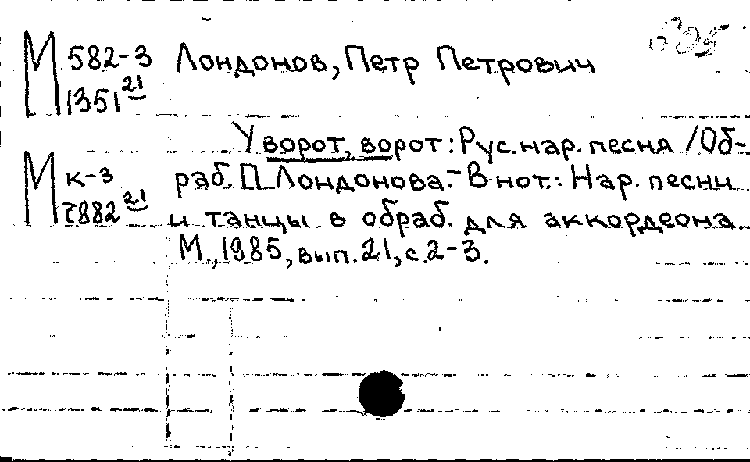 М 582-3 Лондонов, Петр Петрович
1351 21
У ворот, ворот: Рус. нар. песня / Об-
М к-3 раб. П. Лондонова. - В нот.: Нар. песни
7882 21 и танцы в обраб. для аккордеона.
М., 1985, вып. 21, с. 2-3.